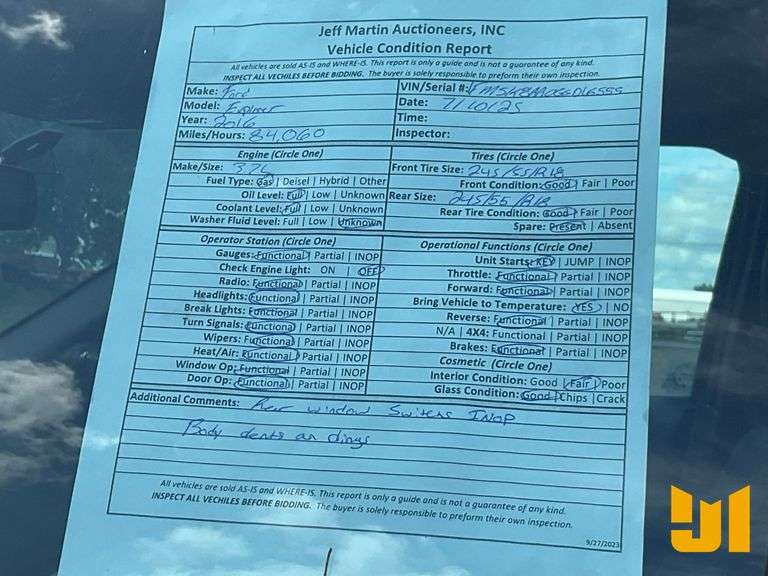 Jeff Martin Auctioneers, INC
Vehicle Condition Report
All vehicles are sold AS-IS and WHERE-IS. This report is only a guide and is not a guarantee of any kind.
INSPECT ALL VECHILES BEFORE BIDDING. The buyer is solely responsible to preform their own inspection.
Make: Ford
Model: Explorer
Year: 2016
Miles/Hours: 84,060
VIN/Serial #:
Date: 7/10/25
Time:
Inspector:
Engine (Circle One)
Make/Size: 3.7L
Fuel Type: Gas | Deisel | Hybrid | Other
Oil Level: Full | Low | Unknown
Coolant Level: Full | Low | Unknown
Washer Fluid Level: Full | Low | Unknown
Tires (Circle One)
Front Tire Size: 245/55/R18
Front Condition: Good | Fair | Poor
Rear Size: 245/55/R18
Rear Tire Condition: Good | Fair | Poor
Spare: Present | Absent
Operator Station (Circle One)
Gauges: Functional | Partial | INOP
Check Engine Light: ON | OFF
Radio: Functional | Partial | INOP
Headlights: Functional | Partial | INOP
Break Lights: Functional | Partial | INOP
Turn Signals: Functional | Partial | INOP
Wipers: Functional | Partial | INOP
Heat/Air: Functional | Partial | INOP
Window Op: Functional | Partial | INOP
Door Op: Functional | Partial | INOP
Operational Functions (Circle One)
Unit Starts: KEY | JUMP | INOP
Throttle: Functional | Partial | INOP
Forward: Functional | Partial | INOP
Bring Vehicle to Temperature: YES | NO
Reverse: Functional | Partial | INOP
N/A | 4X4: Functional | Partial | INOP
Brakes: Functional | Partial | INOP
Cosmetic (Circle One)
Interior Condition: Good | Fair | Poor
Glass Condition: Good | Chips | Crack
Additional Comments: Rear window Switers INOP
Body dents an dings
All vehicles are sold AS-IS and WHERE-IS. This report is only a guide and is not a guarantee of any kind.
INSPECT ALL VECHILES BEFORE BIDDING. The buyer is solely responsible to preform their own inspection.
9/27/2023